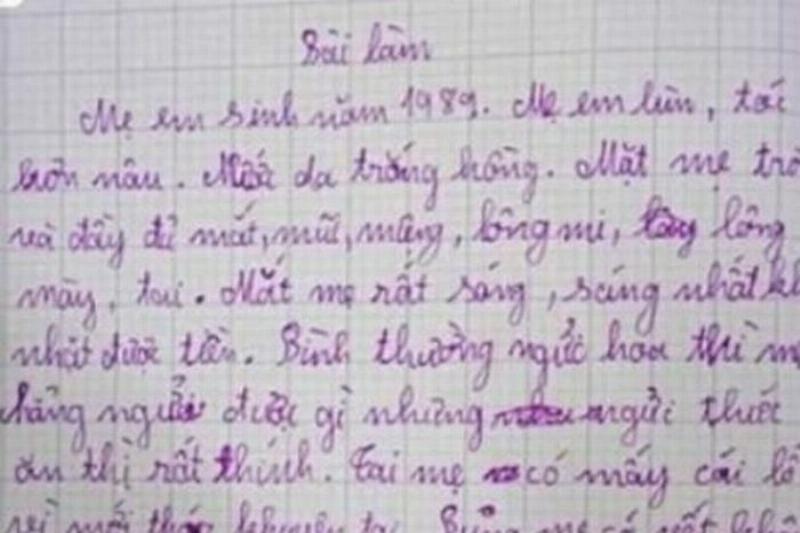 Bài làm
Mẹ em sinh năm 1989. Mẹ em lùn, tóc
hơn nâu. Màu da trắng hồng. Mặt mẹ trò
và đầy đủ mắt, mũi, miệng, lông mi, lông
mày, tai. Mắt mẹ rất sáng, sáng nhất kh
nhặt được tiền. Bình thường ngửi hoa thì mẹ
chẳng ngửi được gì nhưng ngửi thức
ăn thì rất thính. Tai mẹ có mấy cái lỗ
vì mới tháo khuyên tai.